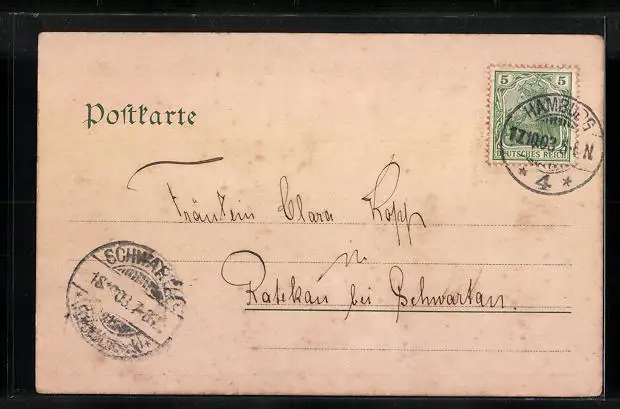 Postkarte
5 5
DEUTSCHES REICH
HAMBURG
17.10.03
* 4 *
Fräulein Clara Kopp
in
Ratekau bei Schwartau.
18.10.03